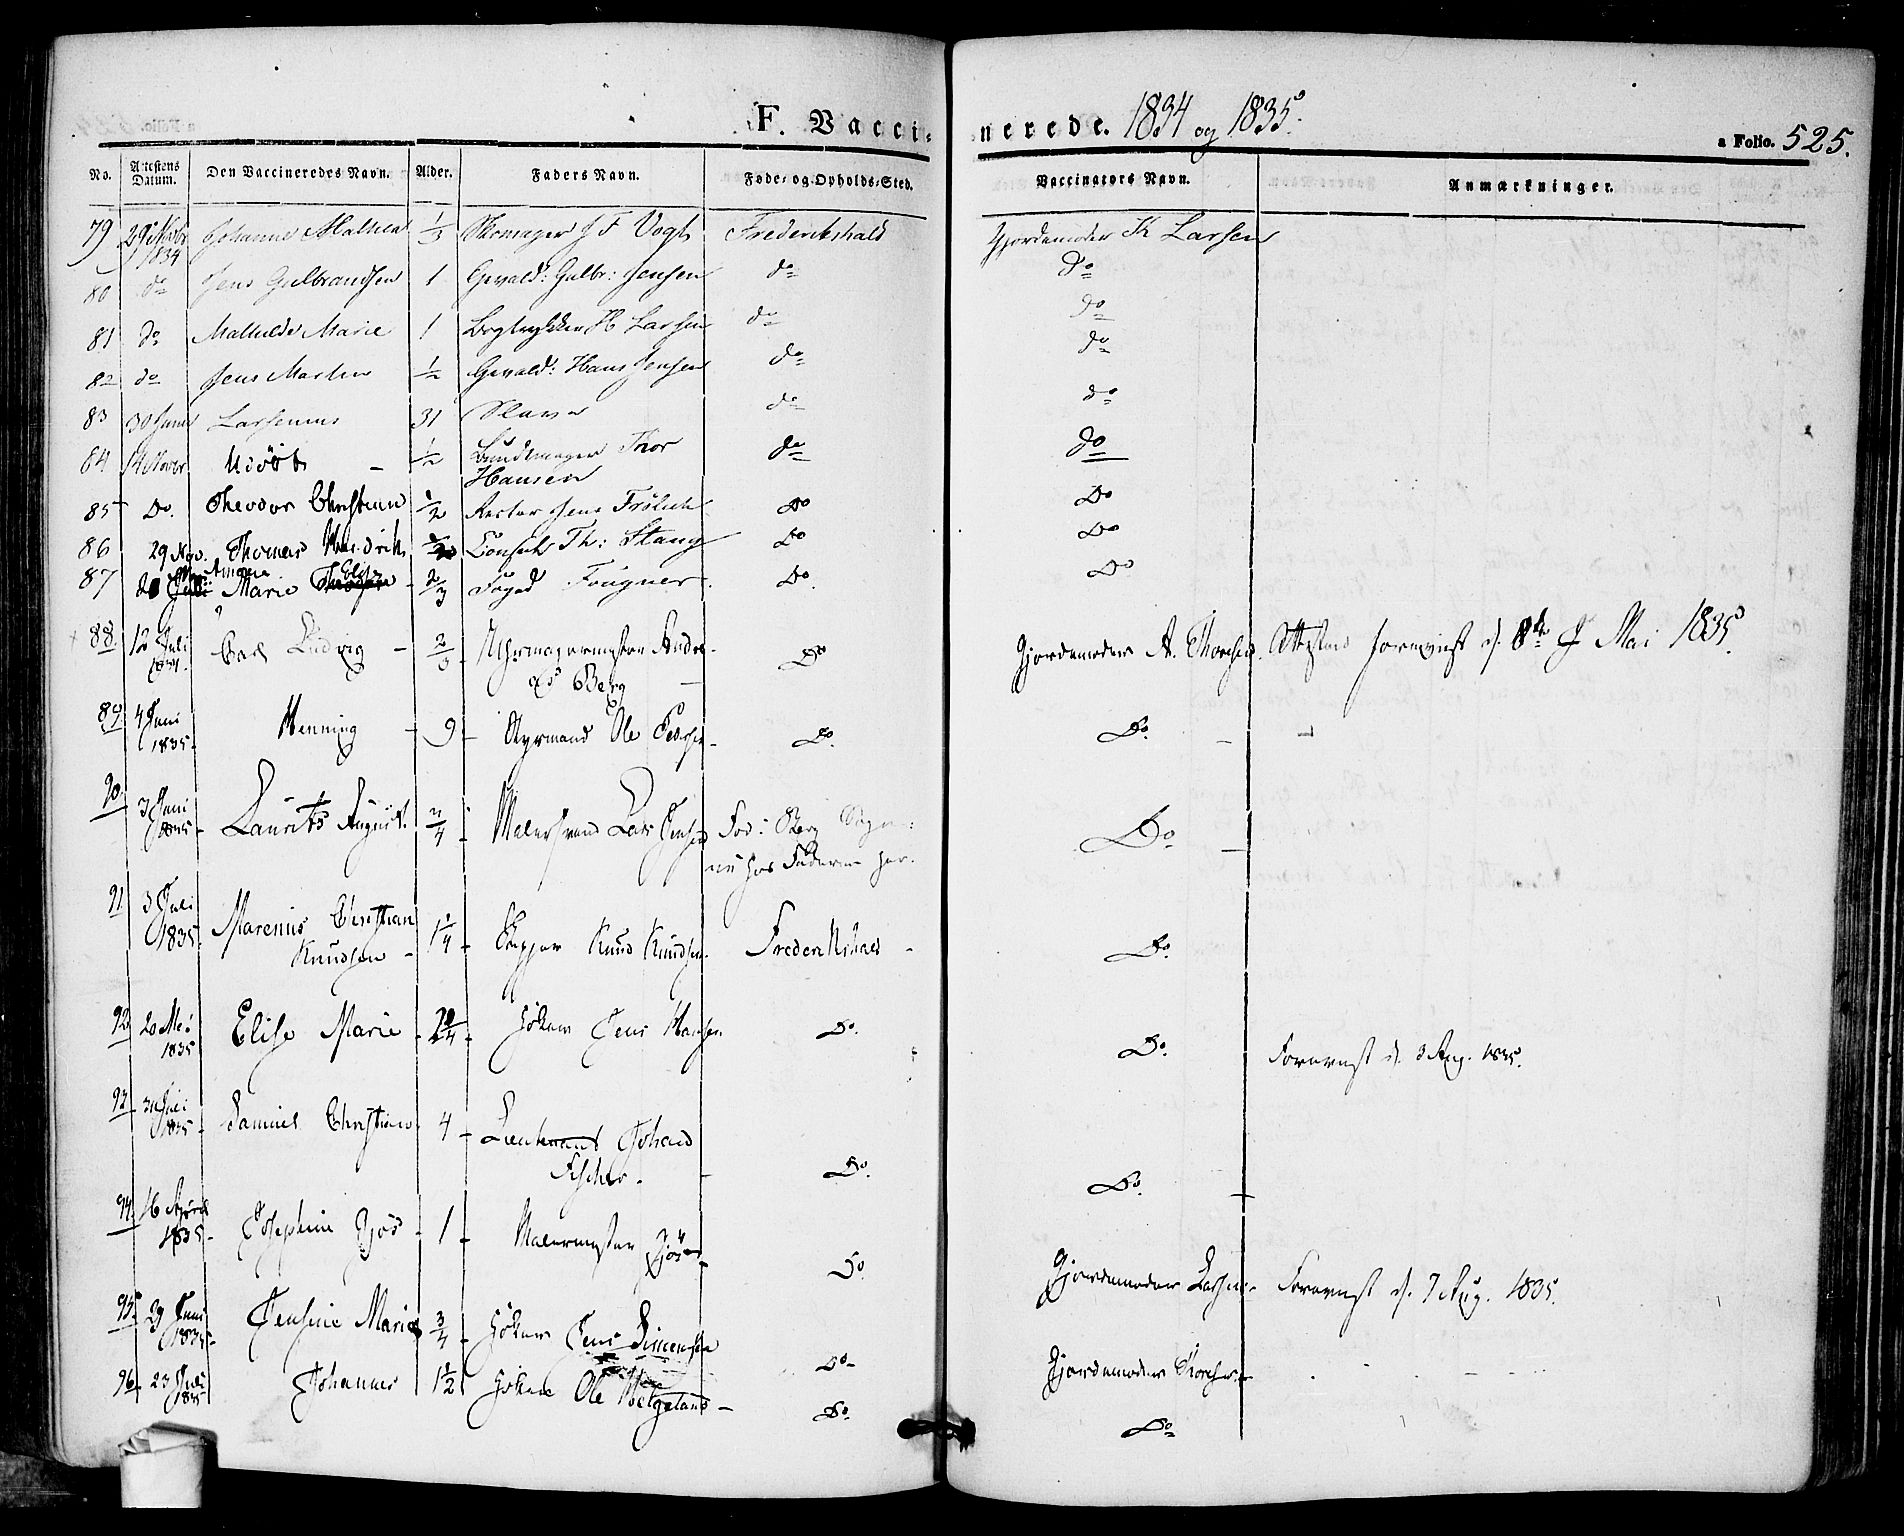 F. Vacci-
nerede. 1834 og 1835.
a Folio. 525.
No. Attestens Datum. Den Vaccineredes Navn. Alder. Faders Navn. Føde- og Opholds-Sted. Vaccinators Navn. Anmærkninger.
79 29 Novbr 1834 Johanne 1/3 Skomager J F Vogt Frederikshald Gjordemoder K Larsen
80 do Jens Gulbrandsen 1 Gevald: Gulbr: Jensen do do
81 do Mathilde Marie 1 H Larsen do do
82 do Jens Martin 1/2 Gevald: Hans Jensen do do
83 30 Juni 31 Slave do do
84 14 Novbr 1/2 Bundtmager Thor do do
Hansen
85 Do. Theodor Christian 1/2 Rector Jens Frölich Do Do
86 29 Nov. Thomas Hendrik Consul Th: Stang Do Do
Amalie Elise
87 Marie 2/3 Foged Fougner. Do. Do
88. 12 Juli 1834. Carl Ludvig 2/3 Uhrmagermester Andre-
as Berg Do Gjordemoder A. Thoresen. Attesten forevist d. 8de Mai 1835.
89 4 Juni 1835 Henning 9 Styrmand Ole Do. Do.
90. 3 Juni 1835 Laurits August. 3/4 Malersvend Lars Jensen Fød: Berg Sogn:
nu hos Faderen her. Do
91 3 Juli 1835. Marenius Christian
Knudsen 1 1/4 Skipper Knud Knudsen. Frederikshald Do.
92 20 Mai 1835 Elise Marie Høker Jens Hansen Do. Do. Forevist d. 3 Aug. 1835.
93 Juli 1835 Samuel Christian 4 Lieutenant Johan
Fischer. Do. Do.
94. 16 April 1835 Josephine Gjøs 1 Malermester Gjøs Do Gjordemoder Larsen Forevist d. 7 Aug. 1835.
95. 29 Juni 1835 Jensine Marie 3/4 Høker Jens Simensen Do Gjordemoder Thoresen
96 23 Juli 1835 Johannes 1 1/2 Høker Ole Helgeland Do. Do